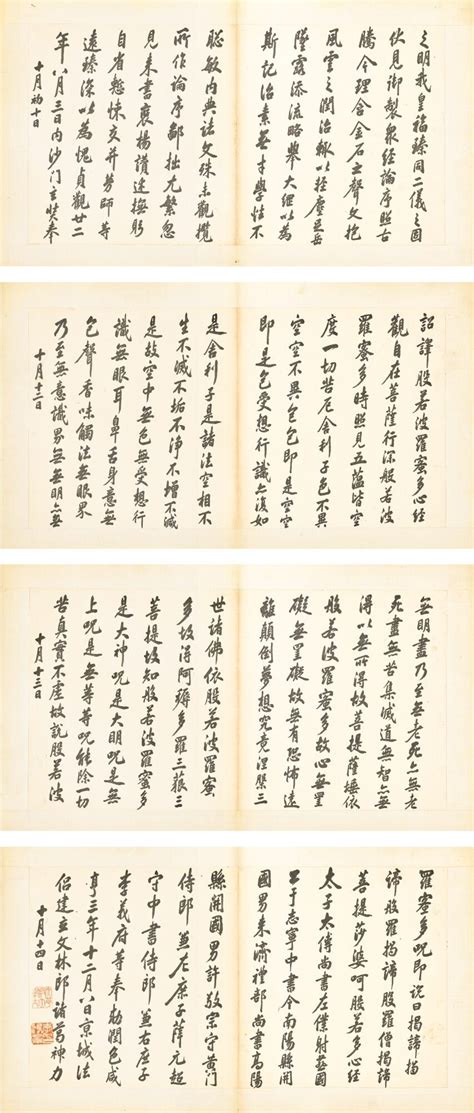 之明我皇福臻同二儀之固
伏見御製衆經論序照古
騰今理含金石之聲文抱
風雲之潤治輒以輕塵足岳
墜露添流略舉大綱以為
斯記治素無才學性不
聰敏內典諸文殊未觀攬
所作論序鄙拙尤繁忽
見來書褒揚讚述撫躬
自省慙悚交并勞師等
遠臻深以為愧貞觀廿二
年八月三日內沙門玄奘奉
十月初十日
詔譯般若波羅蜜多心經
觀自在菩薩行深般若波
羅蜜多時照見五蘊皆空
度一切苦厄舍利子色不異
空空不異色色即是空空
即是色受想行識亦復如
是舍利子是諸法空相不
生不滅不垢不淨不增不減
是故空中無色無受想行
識無眼耳鼻舌身意無
色聲香味觸法無眼界
乃至無意識界無無明亦無
十月十二日
無明盡乃至無老死亦無老
死盡無苦集滅道無智亦無
得以無所得故菩提薩埵依
般若波羅蜜多故心無罣
礙無罣礙故無有恐怖遠
離顛倒夢想究竟涅槃三
世諸佛依般若波羅蜜
多故得阿耨多羅三藐三
菩提故知般若波羅蜜多
是大神呪是大明呪是無
上呪是無等等呪能除一切
苦真實不虛故說般若波
十月十三日
羅蜜多呪即說曰揭諦揭
諦般羅揭諦般羅僧揭諦
菩提莎婆呵般若多心經
太子太傅尚書左僕射燕國
公于志寧中書令南陽縣開
國男來濟禮部尚書高陽
縣開國男許敬宗守黃門
侍郎兼左庶子薛元超
守中書侍郎兼右庶子
李義府等奉勅潤色咸
亨三年十二月八日京城法
侶建立文林郎諸葛神力
十月十四日